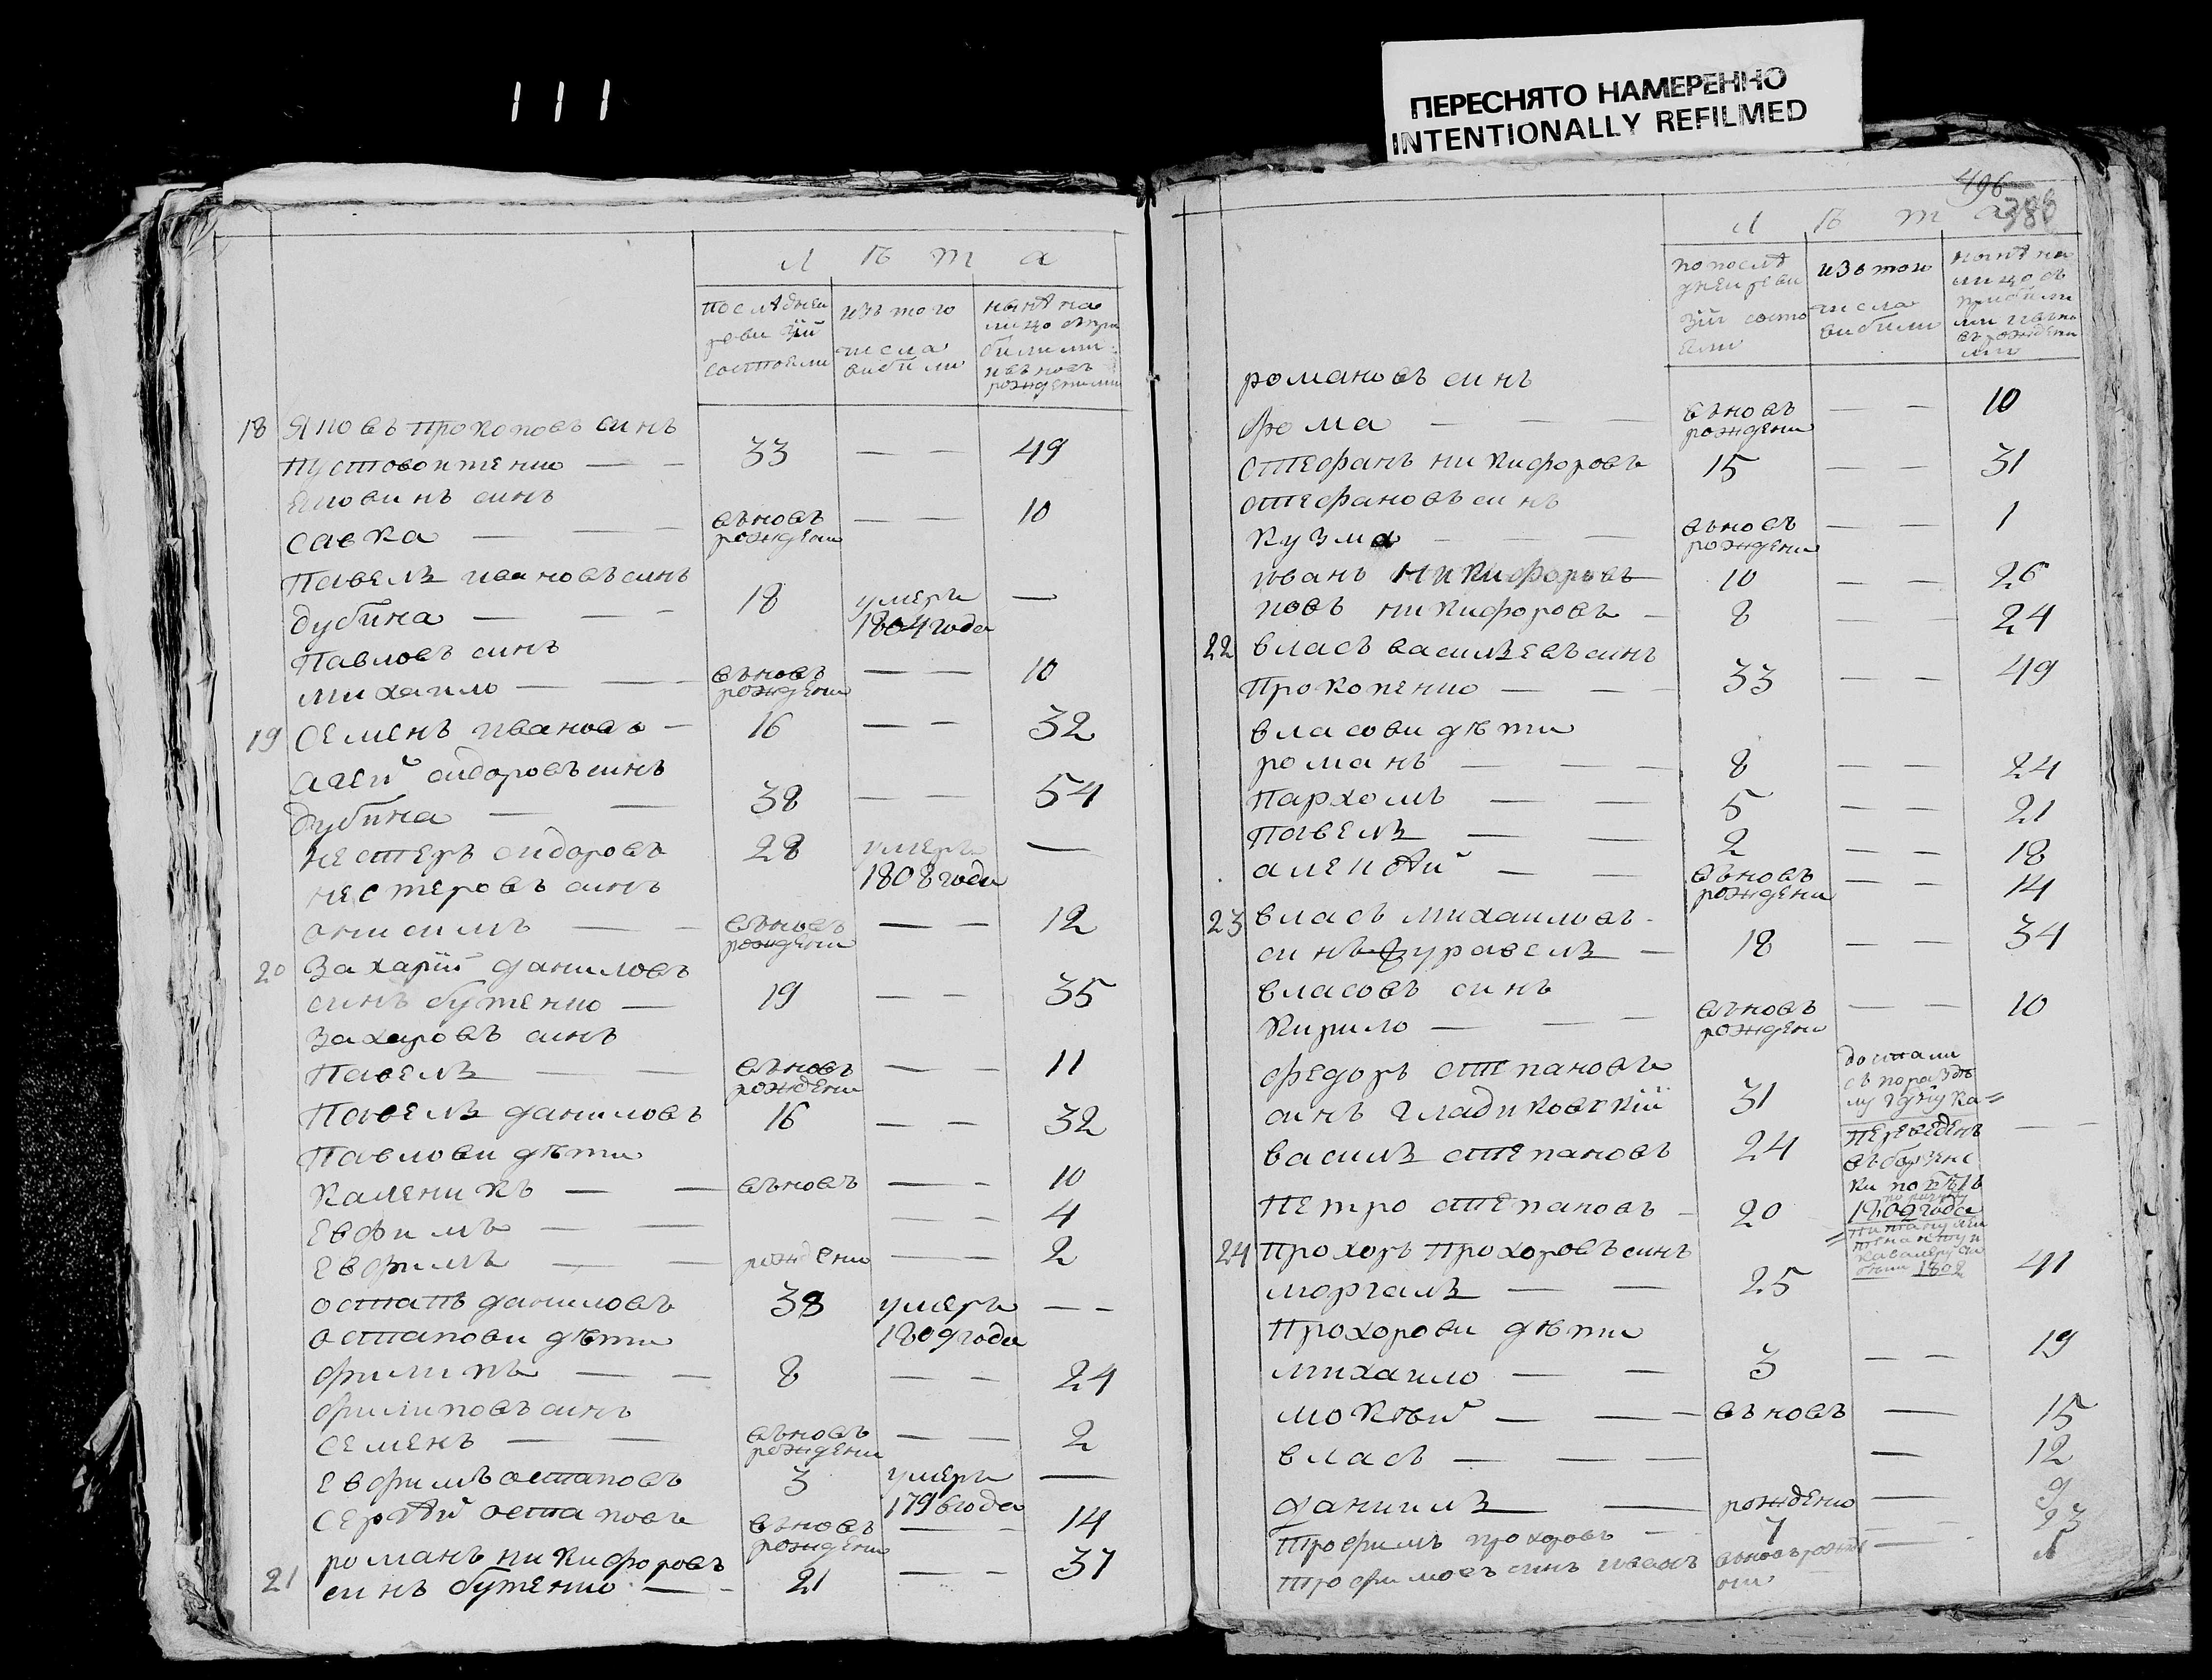 111
ПЕРЕСНЯТО НАМЕРЕННО
INTENTIONALLY REFILMED
Л ѣ т а
последнеи ревизїи состояли
изъ того числа вибили
нынѣ на лицо
18 Яковъ Прокоповъ синъ
Пустовоитенко — — 33 — — 49
Яковинъ синъ
Савка — — — вьновъ рождени — — 10
Павелъ ивановъ синъ
дубина — — — 18 умеръ 1804 года —
Павловъ синъ
михаило — — — вьновъ рождени — — 10
19 Семенъ ивановъ — 16 — — 32
сидоровъ синъ
дубина — — 38 — — 54
нестеръ сидоровъ 28 умеръ 1808 года —
нестеровъ синъ
онисимъ — — вьновъ рождени — — 12
20 Захарїй даниловъ
синъ бутенко — 19 — — 35
Захаровъ синъ
Павелъ — — вьновъ рождени — — 11
Павелъ даниловъ 16 — — 32
Павлови дѣти
каленикъ — — вьновъ — — 10
Евфимъ — — — — 4
Евфимъ — — рождени — — 2
остапъ даниловъ 38 умеръ 1809 года — —
остапови дѣти
филипъ — — 8 — — 24
филиповъ синъ
Семенъ — — вьновъ рождени — — 2
Евфимъ остаповъ 3 умеръ 1796 года —
Сергѣй остаповъ вьновъ рождени — — 14
21 романъ никифоровъ
синъ бутенко — — 21 — — 37
496
388
Л ѣ т а
по последнеи ревизїи состояли
изъ того числа вибили
нынѣ на лицо съ прибилими
романовъ синъ
фома — — — вьновъ рождени — — 10
Стефанъ никифоровъ 15 — — 31
Стефановъ синъ
кузма — — — вьновъ рождени — — 1
иванъ никифоровъ 10 — — 26
яковъ никифоровъ — 8 — — 24
22 власъ василѣевъ синъ
Прокопенко — — — 33 — — 49
власови дѣти
романъ — — — 8 — — 24
Пархомъ — — 5 — — 21
Павелъ — — 2 — — 18
алексѣй — — вьновъ рождени — — 14
23 власъ михаиловъ
синъ журавелъ — 18 — — 34
власовъ синъ
кирило — — — вьновъ рождени — — 10
федоръ степановъ
синъ гладиковскїй 31
василъ степановъ 24 переведенъ — —
Петро степановъ — 20 1809 года
1802
24 Прохоръ Прохоровъ синъ
моргалъ — — 25 41
Прохорови дѣти
михаило — — 3 — — 19
мокѣй — — — вьновъ — 15
власъ — — — — 12
даниилъ — рождено — 9
Трофимъ прохоровъ — 7 — — 23
Трофимовъ синъ иванъ —